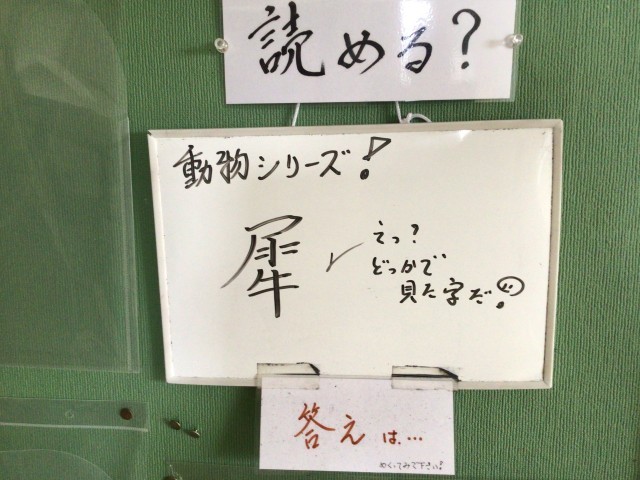 読める?
動物シリーズ!
犀
えっ?
どっかで
見た字だ!
答えは…
めくってみて下さい!